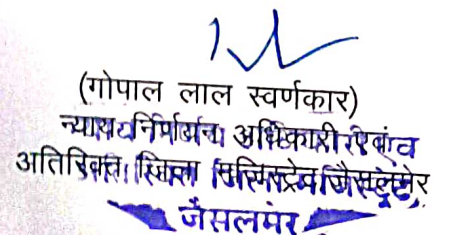 (गोपाल लाल स्वर्णकार)
न्याय निर्णायन अधिकारी एवं
अतिरिक्त जिला मजिस्ट्रेट जैसलमेर
जैसलमेर